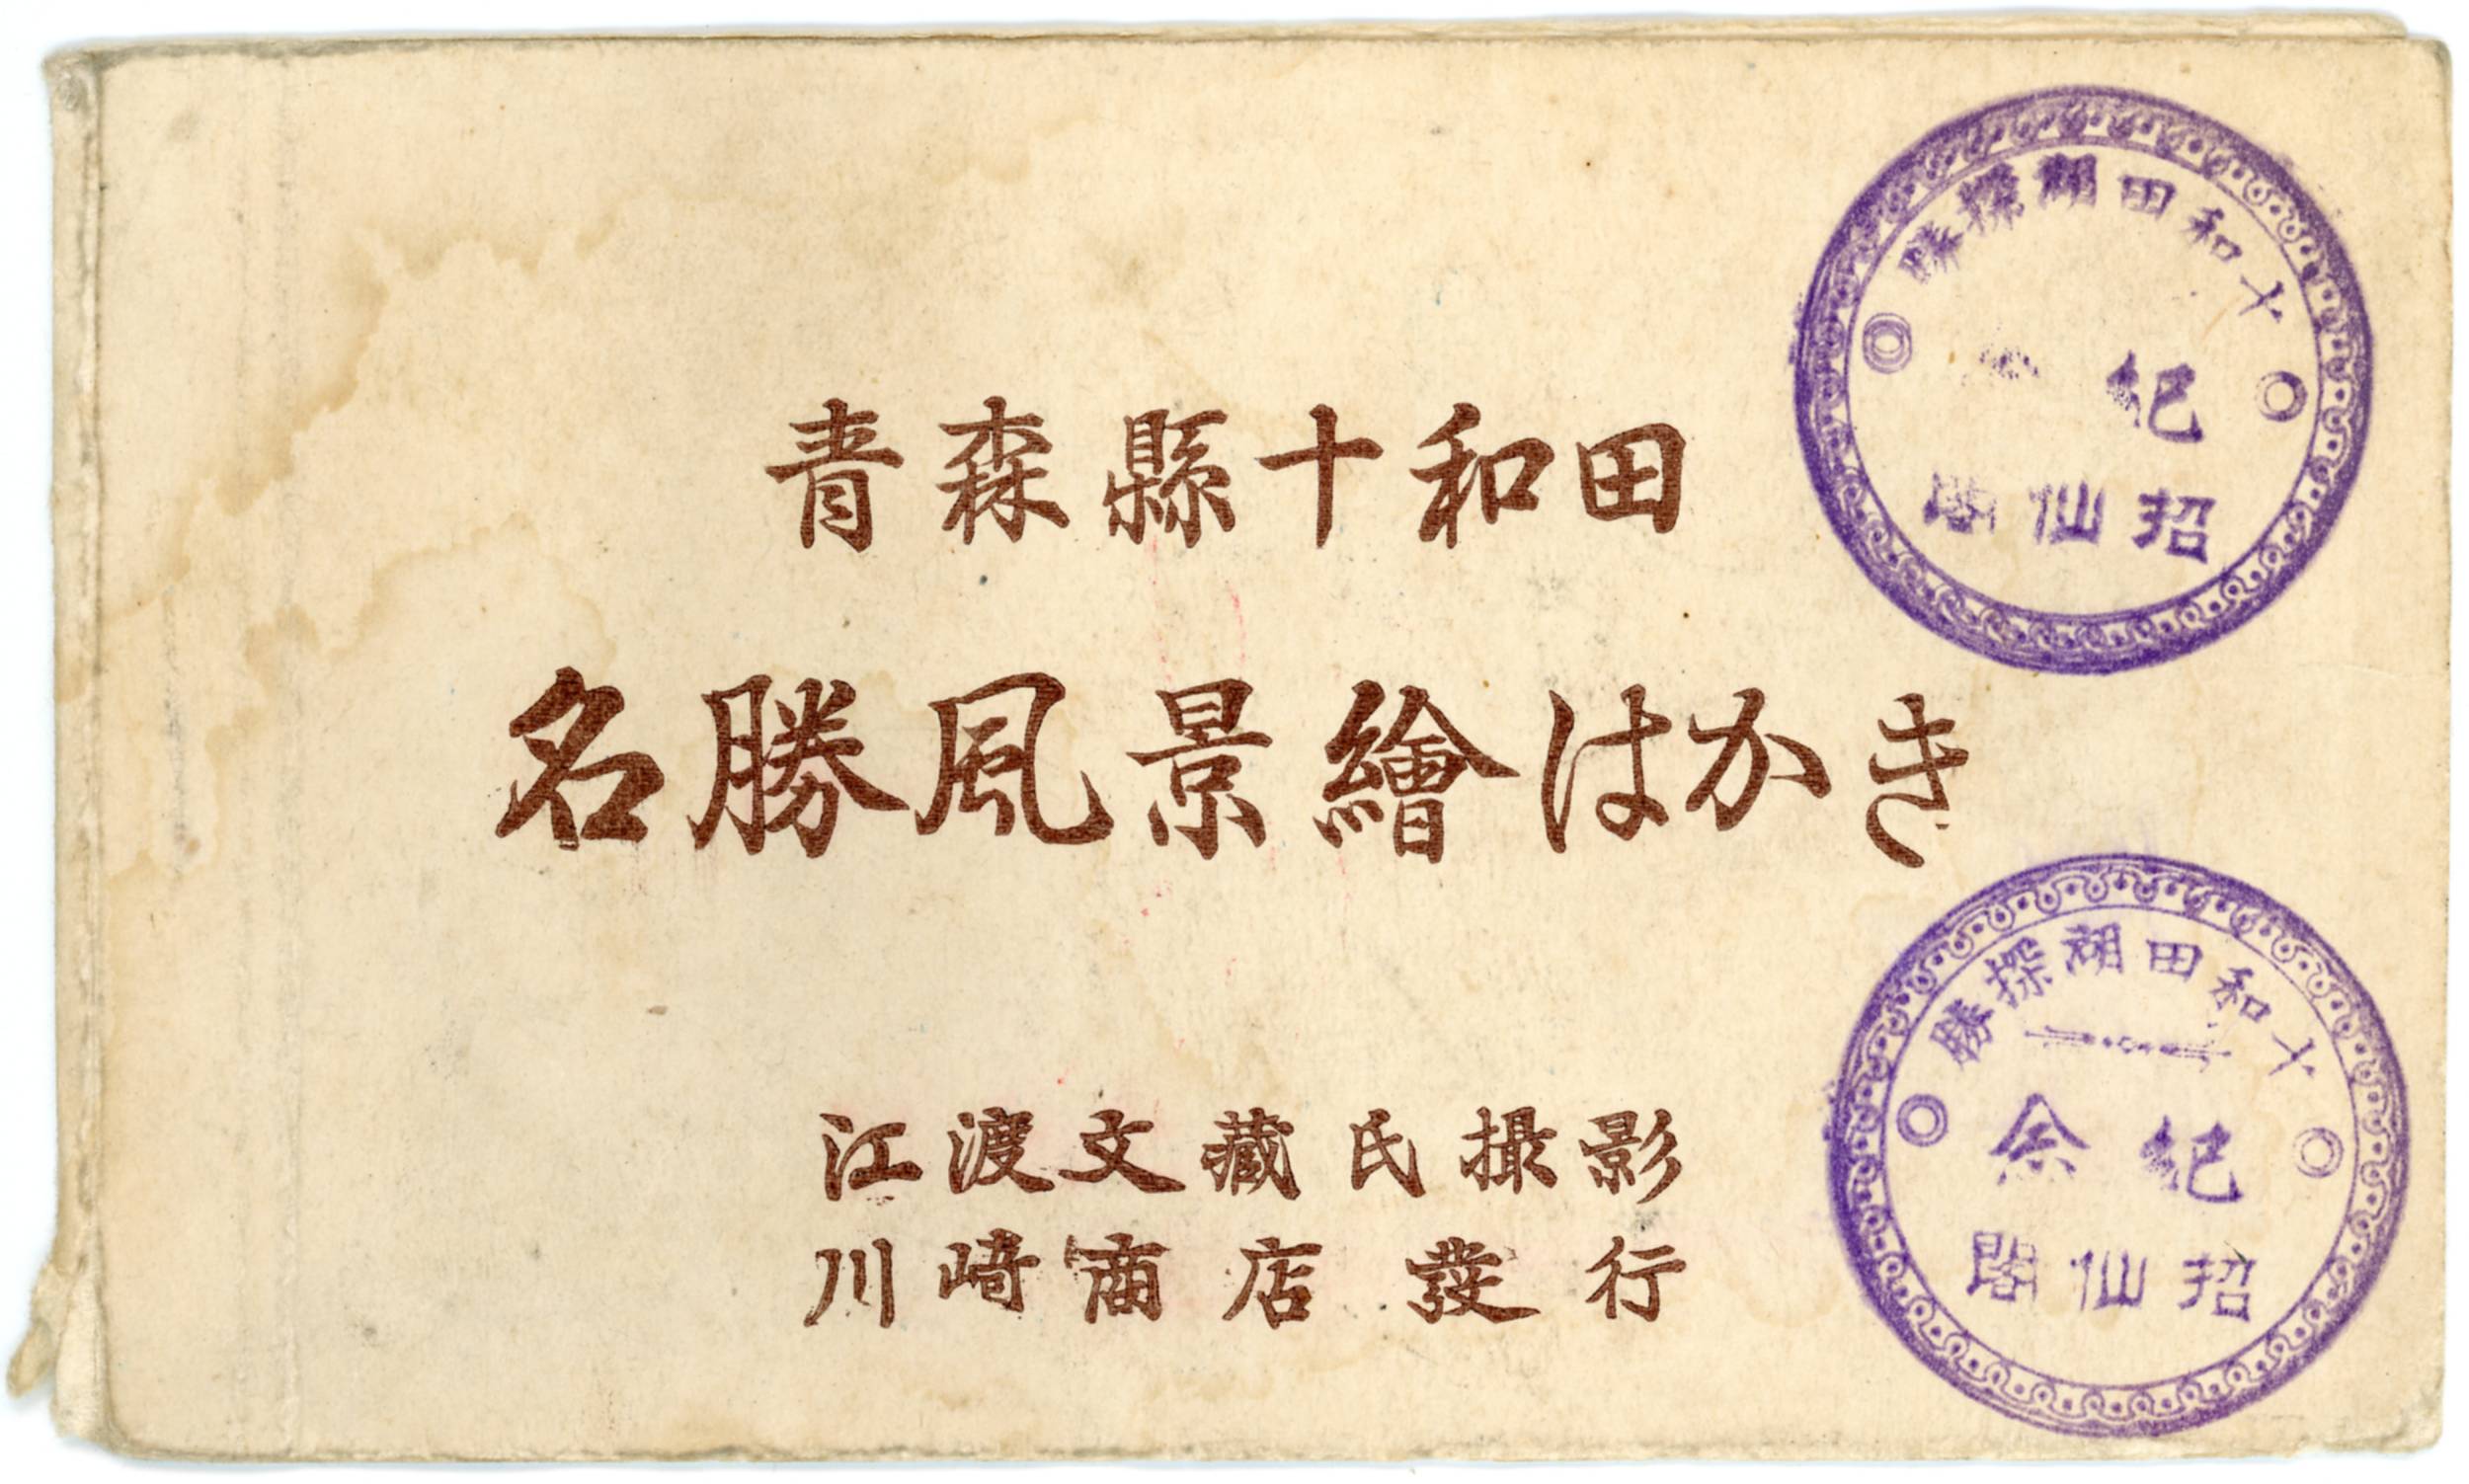 青森縣十和田
名勝風景繪はかき
江渡文藏氏撮影
川崎商店發行
十和田湖探勝
紀
招仙閣
十和田湖探勝
紀念
招仙閣